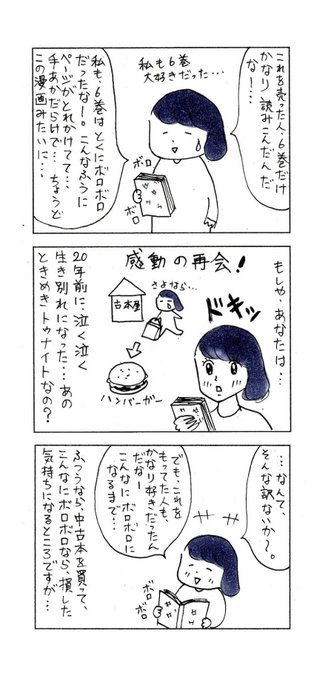 これを売った人、6巻だけ
かなり読みこんだんだ
なー!…
私も6巻
大好きだった…
私も、6巻はとくにボロボロ
だったなー。こんなふうに
ページがとれかけてて…
手あかだらけで…ちょうど
この漫画みたいに…
ボロ
ボロ
もしや、あなたは…
ドキッ
感動の再会!
さよなら…
古本屋
ハンバーガー
20年前に泣く泣く
生き別れになった…あの
ときめきトゥナイトなの?
…なんて、
そんな訳ないか〜。
でも、これを
もってた人も、
かなり好きだったん
だなー
こんなにボロボロに
なるまで…
ボロ
ボロ
ふつうなら、中古本を買って、
こんなにボロボロなら、損した
気持ちになるところですが…